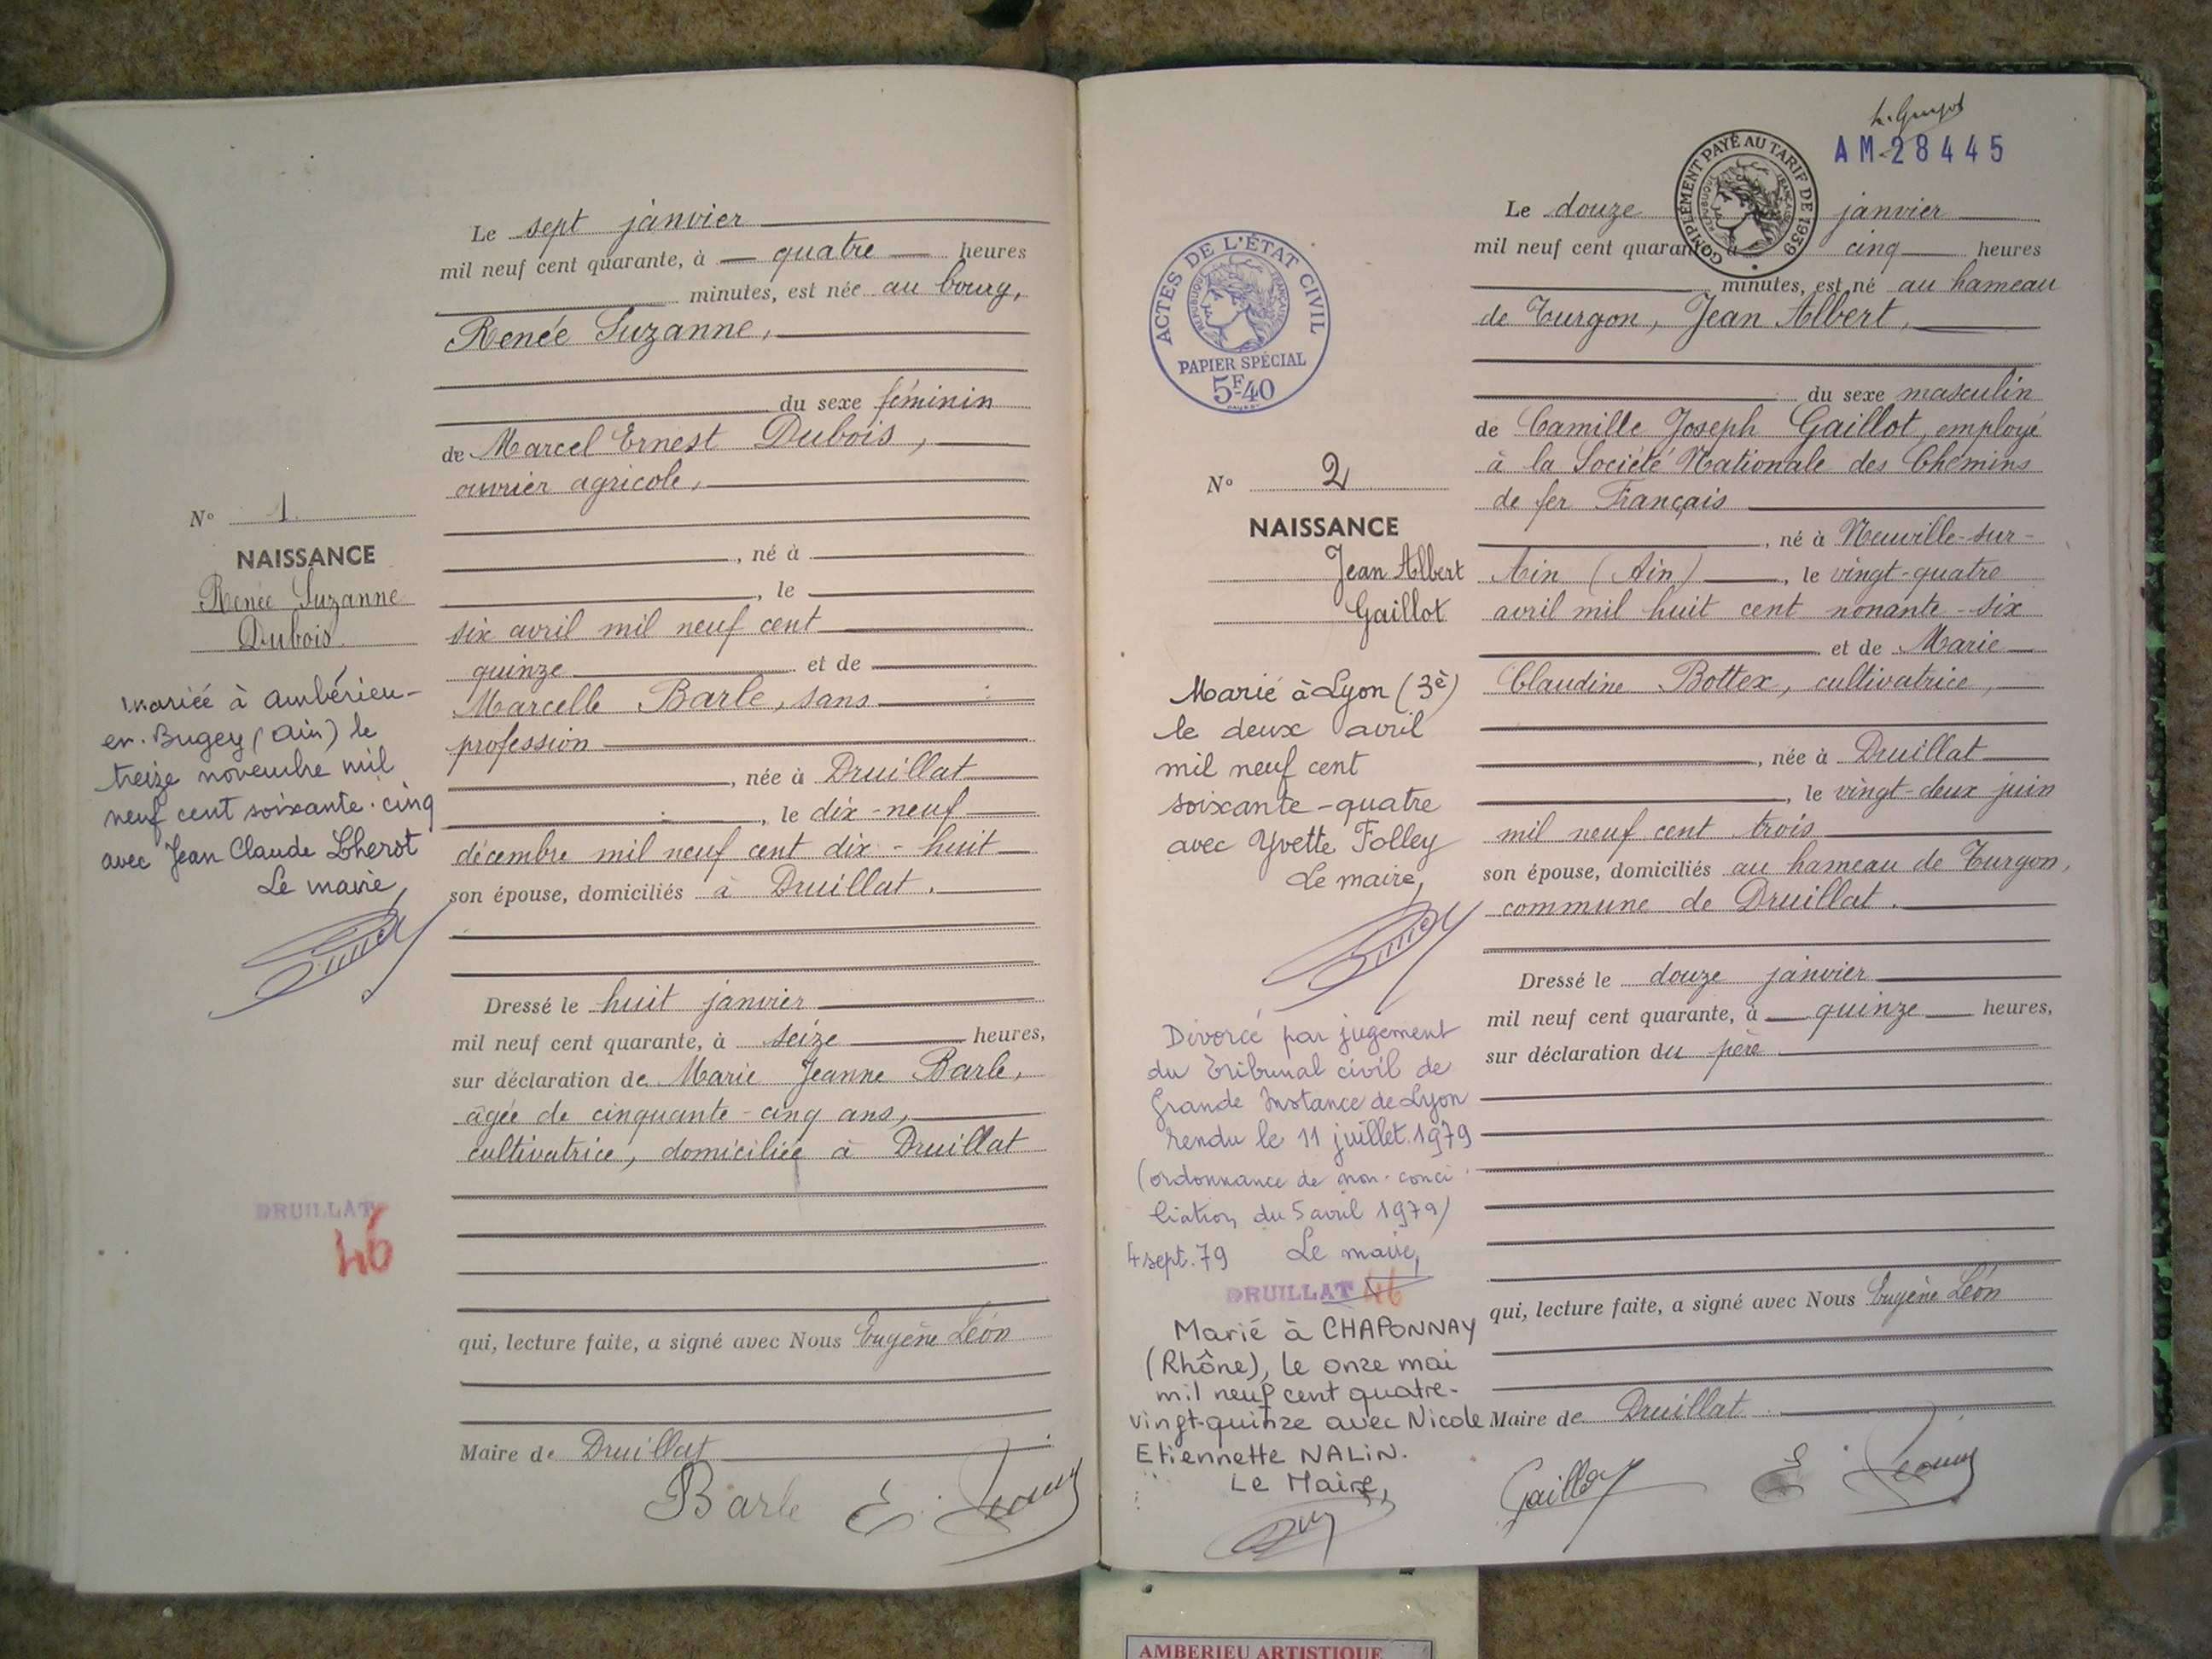 Le sept janvier
mil neuf cent quarante, à quatre heures
minutes, est née au bourg,
Renée Suzanne,
du sexe féminin
de Marcel Ernest Dubois,
ouvrier agricole,
, né à
, le
six avril mil neuf cent
quinze et de
Marcelle Barle, sans
profession
, née à Druillat
, le dix-neuf
décembre mil neuf cent dix-huit
son épouse, domiciliés à Druillat.
Dressé le huit janvier
mil neuf cent quarante, à seize heures,
sur déclaration de Marie Jeanne Barle,
âgée de cinquante-cinq ans,
cultivatrice, domiciliée à Druillat
qui, lecture faite, a signé avec Nous Eugène Léon
Maire de Druillat
Barle E.
N° 1
NAISSANCE
Renée Suzanne
Dubois
mariée à Ambérieu-
en-Bugey (Ain) le
treize novembre mil
neuf cent soixante-cinq
avec Jean Claude Lherot
Le maire,
DRUILLAT
46
AM 28445
COMPLÉMENT PAYÉ AU TARIF DE 1939
RÉPUBLIQUE FRANÇAISE
ACTES DE L'ÉTAT CIVIL
RÉPUBLIQUE FRANÇAISE
PAPIER SPÉCIAL
5F40
N° 2
NAISSANCE
Jean Albert
Gaillot
Marié à Lyon (3è)
le deux avril
mil neuf cent
soixante-quatre
avec Yvette Folley
Le maire,
Divorcé par jugement
du Tribunal civil de
Grande Instance de Lyon
rendu le 11 juillet 1979
(ordonnance de non-conci
liation du 5 avril 1979)
4 sept. 79 Le maire,
DRUILLAT 46
Marié à CHAPONNAY
(Rhône), le onze mai
mil neuf cent quatre-
vingt-quinze avec Nicole
Etiennette NALIN.
Le Maire,
Le douze janvier
mil neuf cent quarante, à cinq heures
minutes, est né au hameau
de Turgon, Jean Albert,
du sexe masculin
de Camille Joseph Gaillot, employé
à la Société Nationale des Chemins
de fer Français
, né à Neuville-sur-
Ain (Ain), le vingt-quatre
avril mil huit cent nonante-six
et de Marie
Claudine Bottex, cultivatrice,
, née à Druillat
, le vingt-deux juin
mil neuf cent trois
son épouse, domiciliés au hameau de Turgon,
commune de Druillat.
Dressé le douze janvier
mil neuf cent quarante, à quinze heures,
sur déclaration du père
qui, lecture faite, a signé avec Nous Eugène Léon
Maire de Druillat
Gaillot E.
AMBERIEU ARTISTIQUE